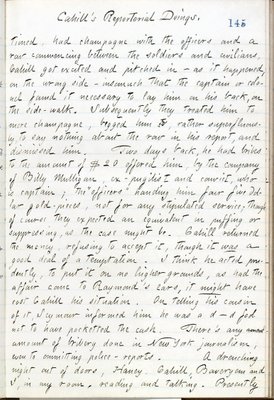 Cahill's Reportorial Doings.
145
timed, had champagne with the officers and a
row commencing between the soldiers and civilians,
Cahill got excited and pitched in - as it happened,
on the wrong side - insomuch that the captain or colo-
nel found it necessary to lay him on his back, on
the side-walk. Subsequently they treated him to
more champagne begged him, rather superfluous-
ly, to say nothing about the row in his report, and
dismissed him. Two days back, he had bribes
to the amount of $20 offered him, by the company
of Billy Mulligan, ex-pugilist and convict, who
is captain, the officers handing him four five dol-
lar gold-pieces, not for any stipulated service, though
of course they expected an equivalent in puffing or
suppressing, as the case might be. Cahill returned
the money, refusing to accept it, though it was a
good deal of a temptation. I think he acted pru-
dently, to put it on no higher grounds, as had the
affair come to Raymond's ears, it might have
cost Cahill his situation. On telling his cousin
of it, Seymour informed him he was a d-d fool
not to have pocketted the cash. There's any
amount of bribery done in New York journalism,
even to omitting police-reports. A drenching
night out of doors, Haney, Cahill, Boweryem and
I, in my room, reading and talking. Presently